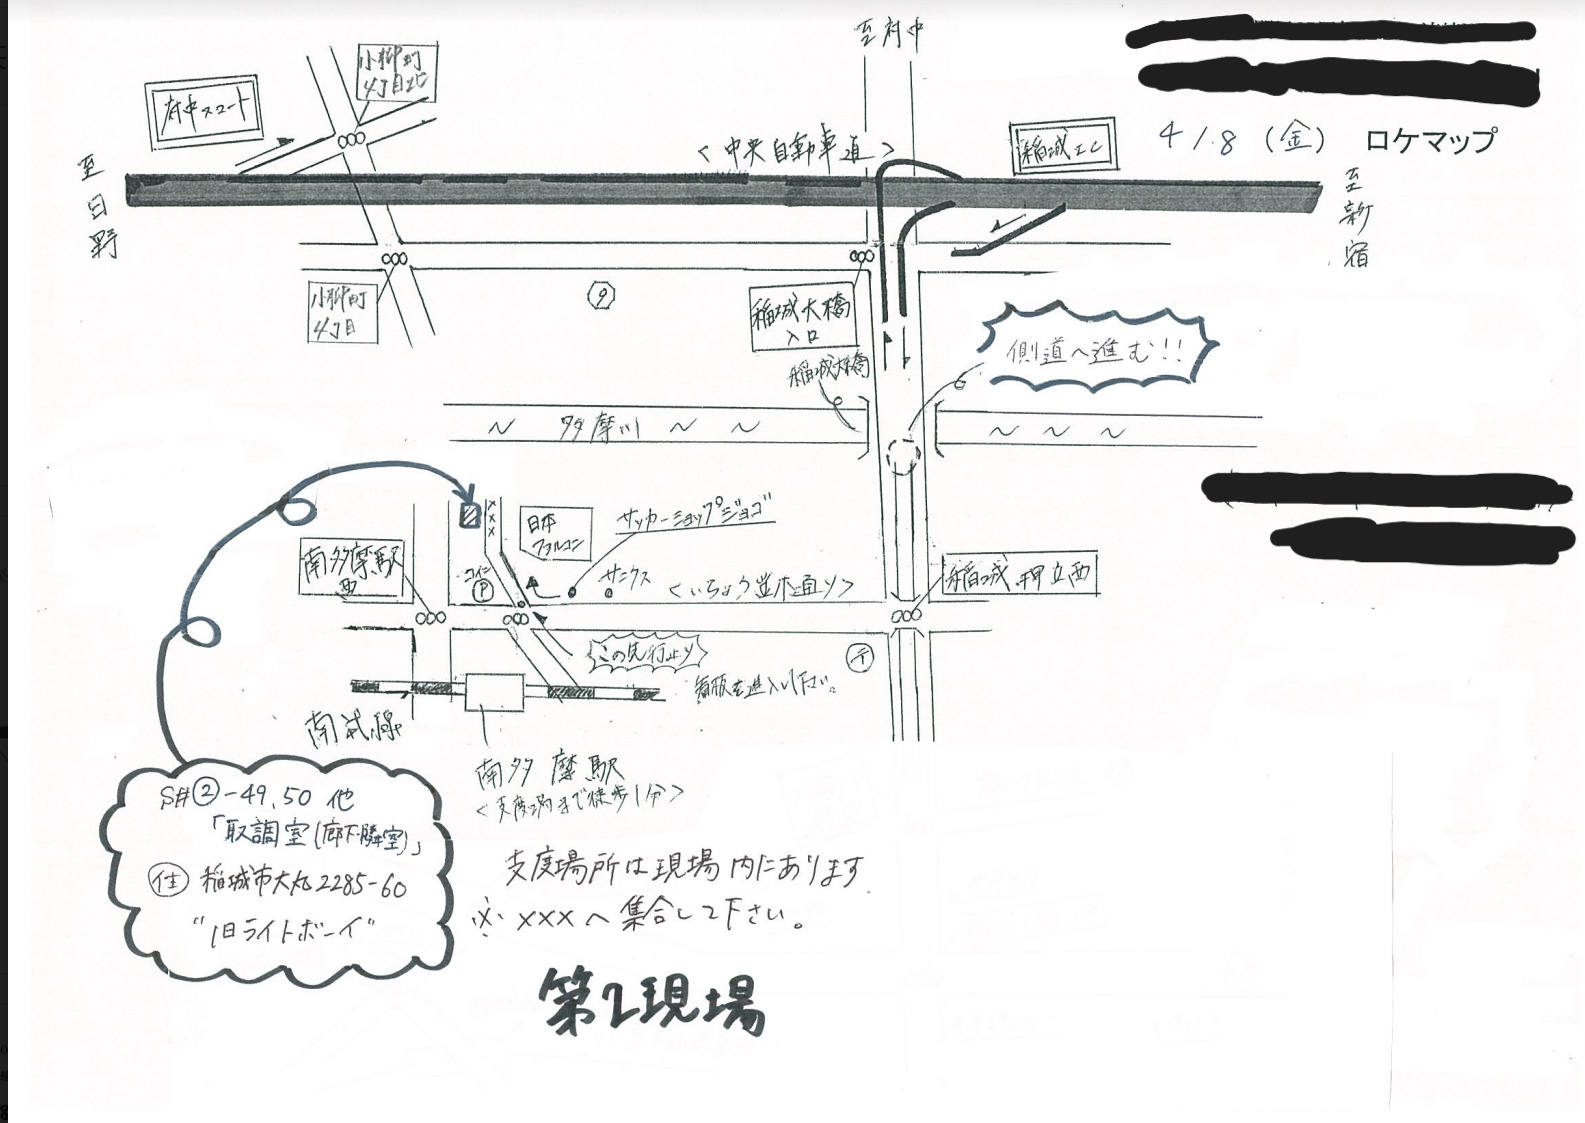 至府中
小柳町
4丁目北
府中スマート
至日野
<中央自動車道>
稲城IC
4/.8 (金) ロケマップ
至新宿
小柳町
4丁目
9
稲城大橋
入口
稲城大橋
側道へ進む!!
~ 多摩川 ~ ~
~ ~ ~
×××
日本
ファルコン
サッカーショップジョゴ
南多摩駅
西
コイン
P
サニクス
<いちょう並木通り>
稲城押立西
この先行止り
看板を進入して下さい。
〒
南武線
南多摩駅
<支度場所まで徒歩1分>
S#②-49,50 他
「取調室(廊下・隣室)」
住 稲城市大丸2285-60
"旧ライトボーイ"
支度場所は現場内にあります
※ ×××へ集合して下さい。
第2現場